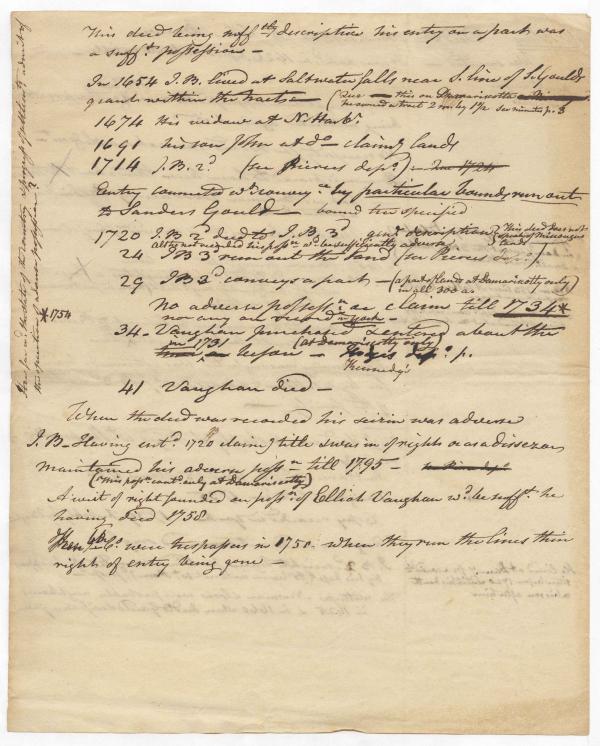 This deed being suff.tly descriptive his entry on a part was
a suff.t possession —
In 1654 J.B. lived at Saltwater falls near S. line of S. Goulds
grant within the tract — (this on Damariscotta
he owned a tract 2 m. by 1 1/2 see minutes p. 3
1674 His widow at N. Harb.r
1691 his son John at do — claim.g lands
1714 J.B. 2.d (see Pierces dep.o)
Entry connected wt convey.ce by particular bounds run out
to Sanders Gould — bound tree specified
1720 J.B 2.d deed to J.B. 3.d gen.l description (This deed does not
speak of Muscongus
lands
altho not recorded his poss.n wd. be sufficiently adverse
24 J B 3 run out the land (see Pierces Dep.o)
29 J B 3.d conveys a part — (a part of lands at Damariscotty only)
in all 300 as
No adverse possess.n or claim till 1734*
nor any on record in york —
34 — Vaughan purchased & entered about the
in 1731 (at damariscotty only)
or before — dep.o p.
Kennedy's
41 Vaughan died —
When the deed was recorded his seizin was adverse
J.B — Having ent.d 1720 claim.g title & was in of rights or as a disseizor
maintained his adverse poss.n till 1795 —
(This poss.n cont.d only at Damariscotty)
A writ of right founded on poss.n of Elliot Vaughan wd. be suff.t he
having died 1758
& Co. were trespassers in 1750 — when they run the lines their
rights of entry being gone —
*1754
How far in the state of the country & progress of settlem.ts admit of
the question of adverse possession?